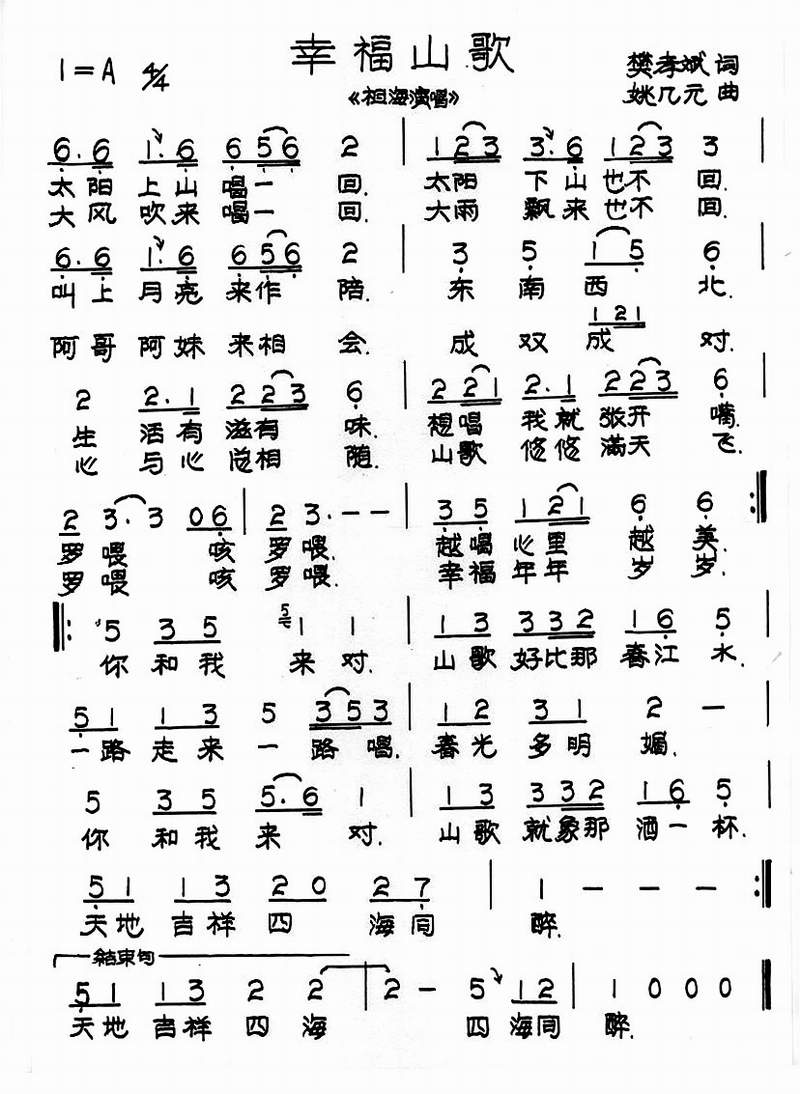 幸福山歌
1=A 4/4
《祖海演唱》
樊孝斌 词
姚几元 曲
6. 6 1. 6 6 5 6 2 | 1 2 3 3. 6 1 2 3 3 |
太阳 上山 唱一 回. 太阳 下山 也不 回.
大风 吹来 唱一 回. 大雨 飘来 也不 回.
6. 6 1. 6 6 5 6 2 | 3 5 1 5 6 |
叫上 月亮 来作 陪. 东 南 西 北.
1 2 1
阿哥 阿妹 来相 会. 成 双 成 对.
2 2. 1 2 2 3 6 | 2 2 1 2. 1 2 2 3 6 |
生 活有 滋有 味. 想唱 我就 张开 嘴.
心 与心 总相 随. 山歌 悠悠 满天 飞.
2 3. 3 0 6 | 2 3. - - | 3 5 1 2 1 6 6 :||
罗 喂 咳 罗 喂. 越唱 心里 越 美.
罗 喂 咳 罗 喂. 幸福 年年 岁 岁.
||: 5 3 5 5 1 1 | 1 3 3 3 2 1 6 5 |
你 和我 来 对. 山歌 好比那 春江 水.
5 1 1 3 5 3 5 3 | 1 2 3 1 2 - |
一路 走来 一 路唱. 春光 多明 媚.
5 3 5 5. 6 1 | 1 3 3 3 2 1 6 5 |
你 和我 来 对. 山歌 就象那 酒一 杯.
5 1 1 3 2 0 2 7 | 1 - - - :||
天地 吉祥 四 海同 醉.
结束句
5 1 1 3 2 2 | 2 - 5 1 2 | 1 0 0 0 ||
天地 吉祥 四 海 四 海同 醉.